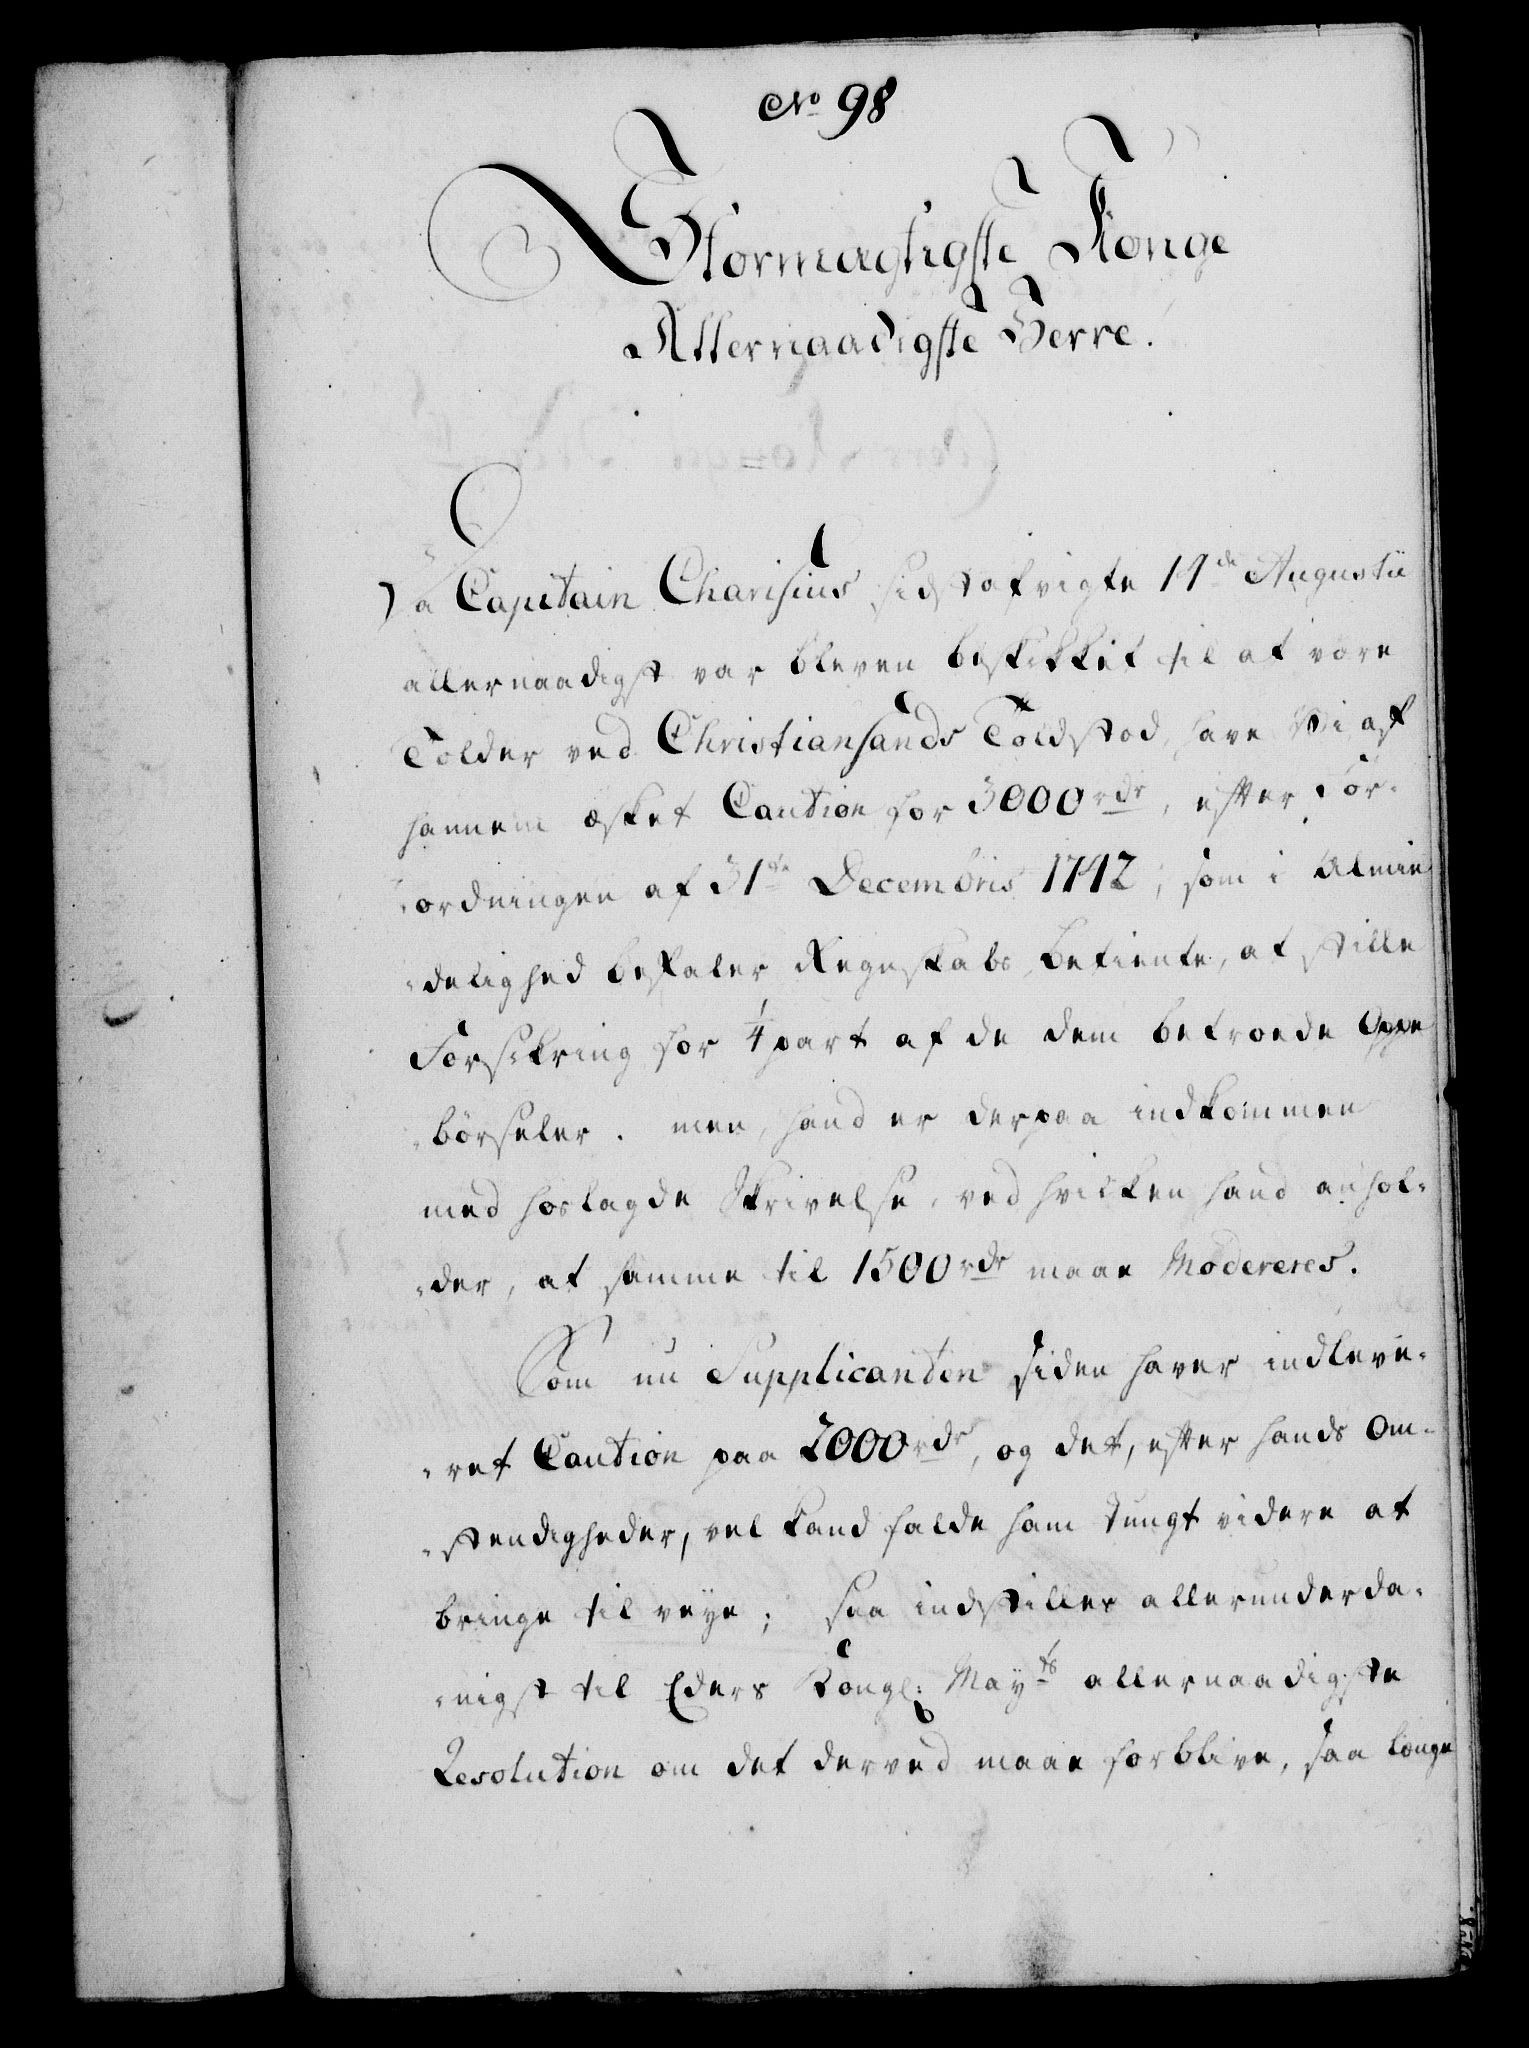 No 98
Stormægtigste Konge
Allernaadigste Herre.
Da Capitain Charisius sidstafvigte 14de Augustii
allernaadigst var bleven beskikket til at være
Tolder ved Christiansands Toldsted, have Vi af
hannem æsket Caution for 3000 rdr, efter For-
-ordningen af 31te Decembris 1742, som i Almin
-delighed befaler Regnskabs Betiente, at stille
Forsikring for 1/4 part af de dem betroede Oppe
-børseler. men, hand er derpaa indkommen
med hoslagde Skrivelse, ved hvilken hand anhol-
-der, at samme til 1500 rdr maae Modereres.
Som nu Supplicanten siden haver indleve-
-ret Caution paa 2000 rdr, og det, efter hands Om-
-stendigheder, vel kand falde ham tungt videre at
bringe til veye; saa indstilles allerunderda-
-nigst til Eders Kongl: Mayts allernaadigste
Resolution om det derved maae forblive, saa længe